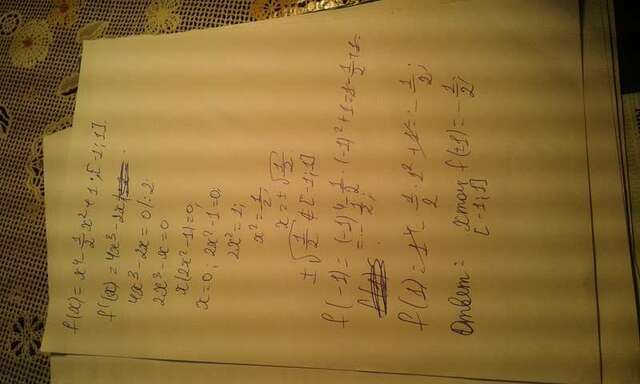 f(x) = x⁴ - 1/2 x² + 1; [-1; 1].
f'(x) = 4x³ - 2x
4x³ - 2x = 0 | : 2
2x³ - x = 0
x(2x² - 1) = 0;
x = 0; 2x² - 1 = 0;
2x² = 1;
x² = 1/2;
x = ± √1/2
± √1/2 ∉ [-1; 1]
f(-1) = (-1)⁴ - 1/2 · (-1)² + 1 =
= - 1/2;
f(1) = 1⁴ - 1/2 · 1² + 1 = - 1/2;
Ответ: f(±1) = - 1/2;
[-1; 1]